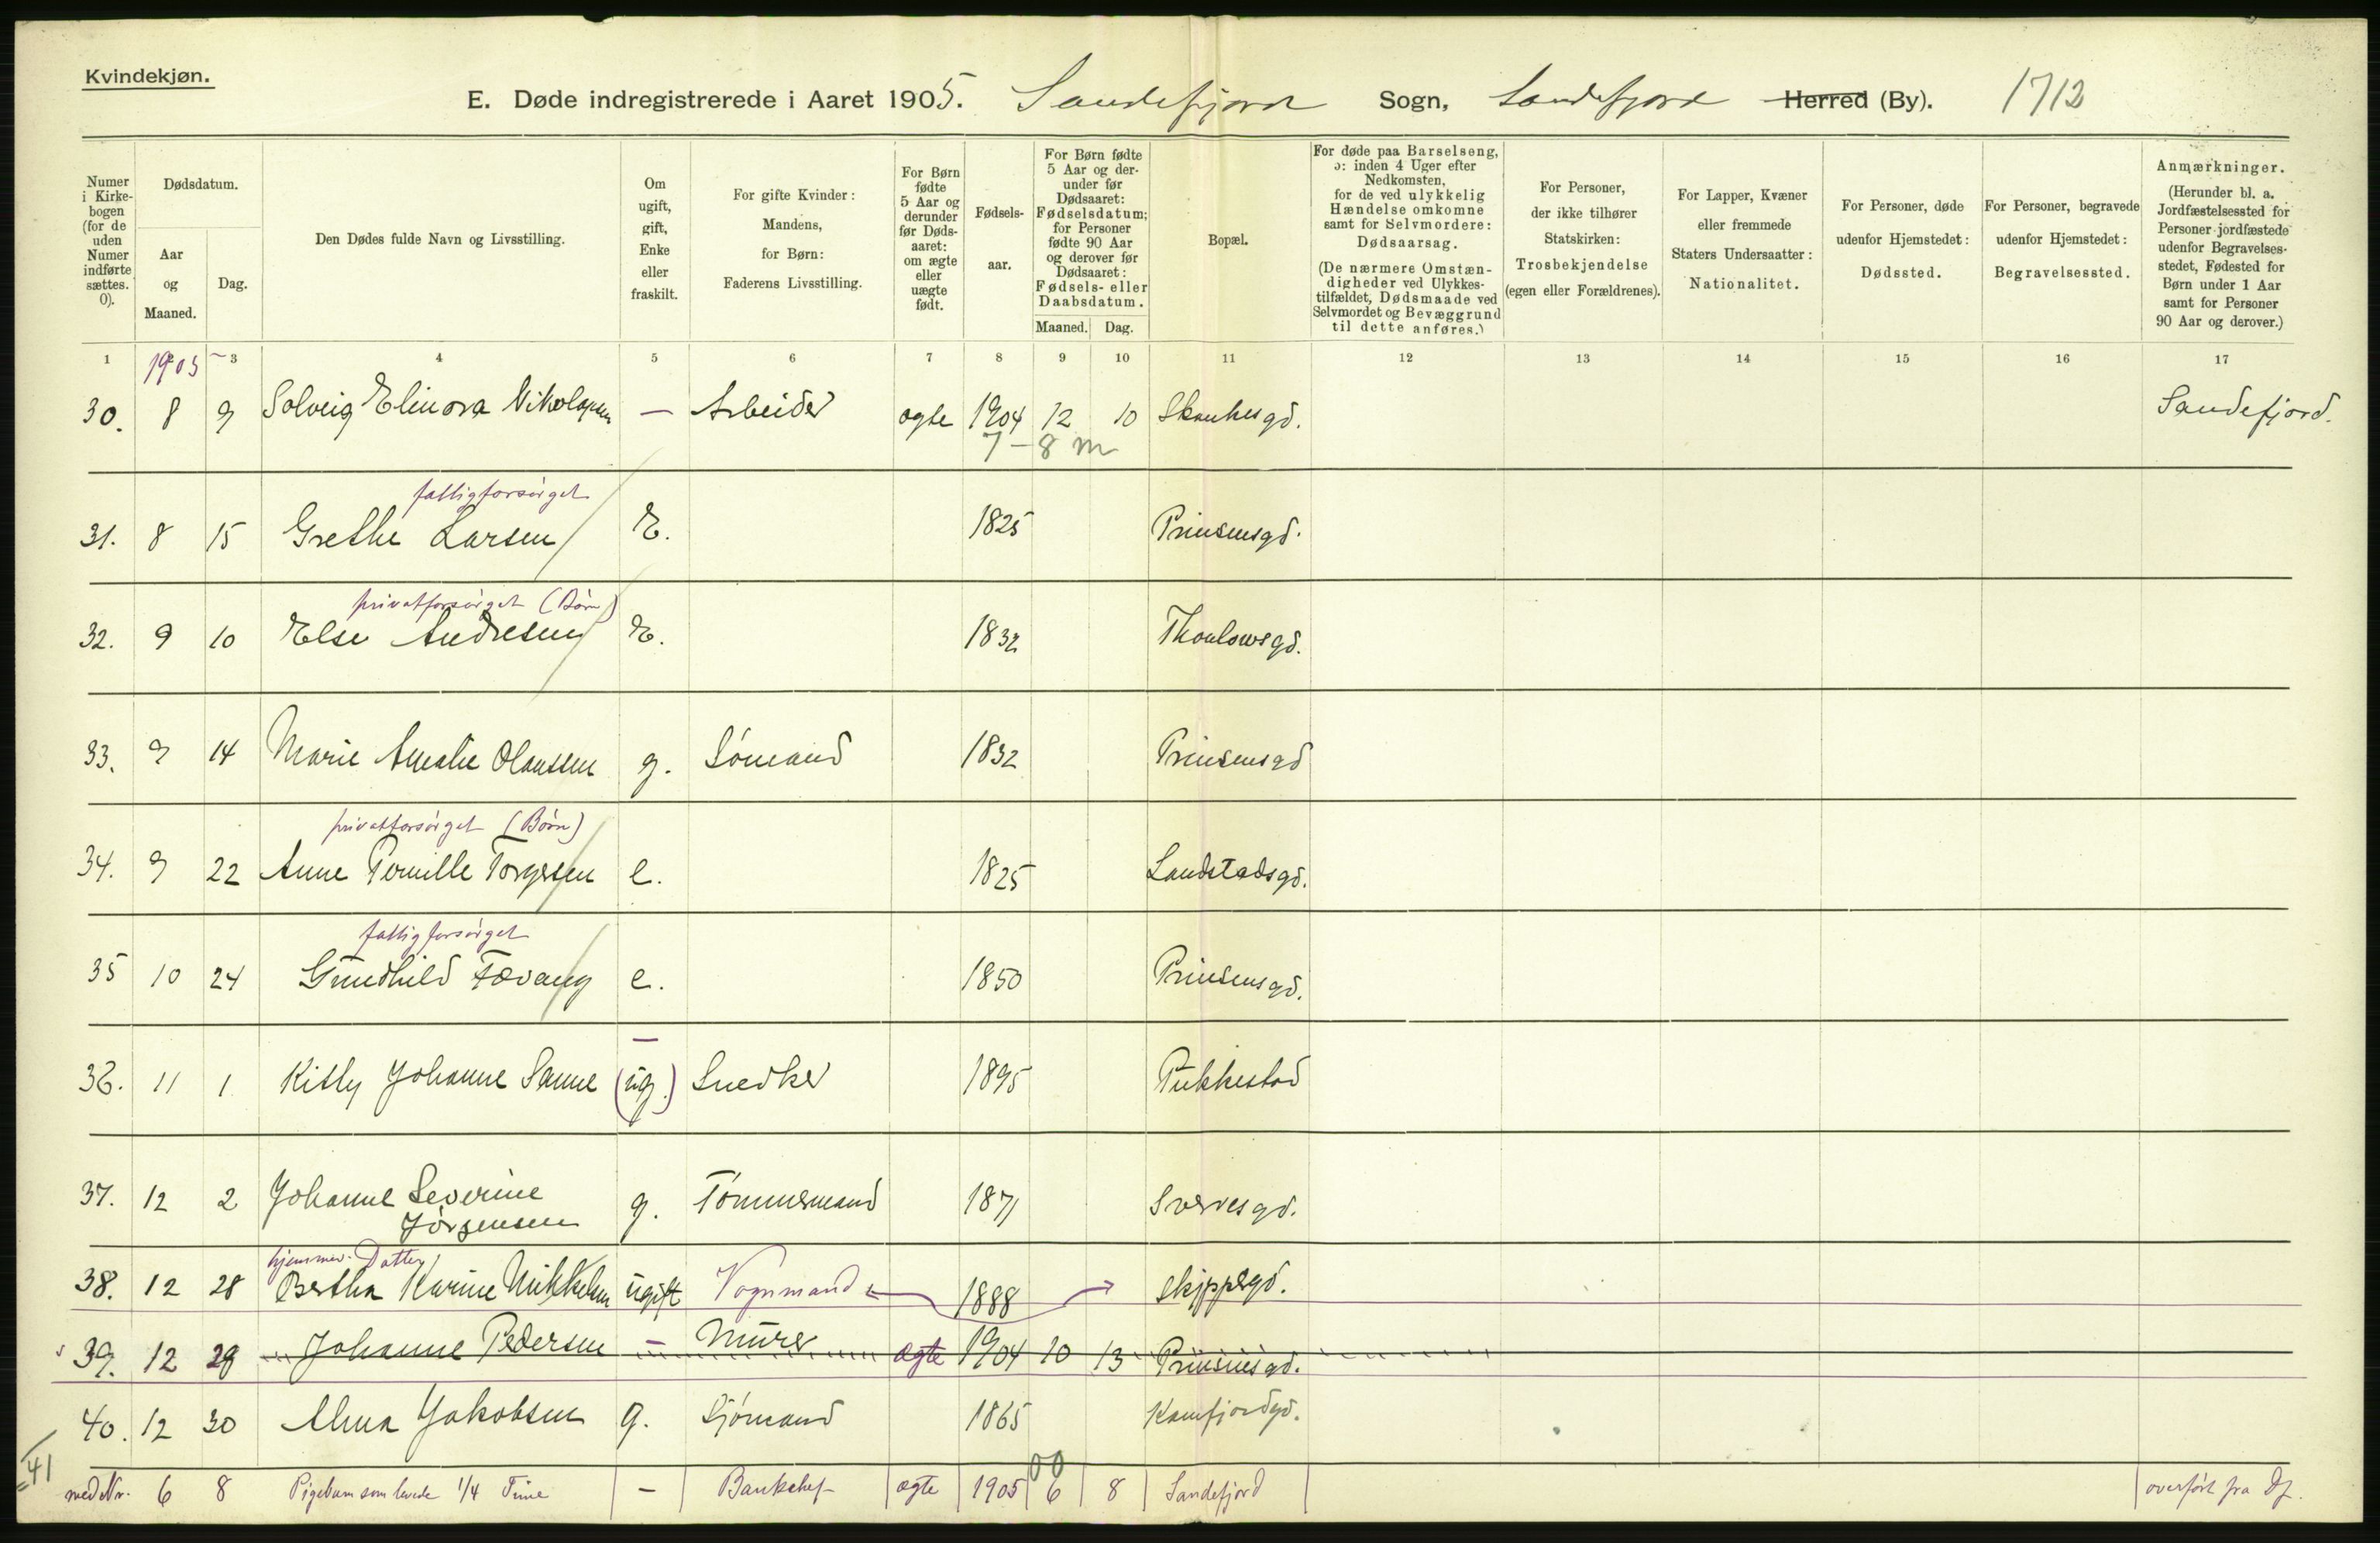 Kvindekjøn.
E. Døde indregistrerede i Aaret 1905. Sandefjord Sogn, Sandefjord Herred (By). 1712
Numer i Kirkebogen (for de uden Numer indførte sættes. 0).
Dødsdatum.
Aar og Maaned.
Dag.
Den Dødes fulde Navn og Livsstilling.
Om ugift, gift, Enke eller fraskilt.
For gifte Kvinder: Mandens, for Børn: Faderens Livsstilling.
For Børn fødte 5 Aar og derunder før Dødsaaret: om ægte eller uægte født.
Fødselsaar.
For Børn fødte 5 Aar og derunder før Dødsaaret: Fødselsdatum; for Personer fødte 90 Aar og derover før Dødsaaret: Fødsels- eller Daabsdatum.
Maaned. Dag.
Bopæl.
For døde paa Barselseng, ɔ: inden 4 Uger efter Nedkomsten, for de ved ulykkelig Hændelse omkomne samt for Selvmordere: Dødsaarsag.
(De nærmere Omstændigheder ved Ulykkestilfældet, Dødsmaade ved Selvmordet og Bevæggrund til dette anføres.)
For Personer, der ikke tilhører Statskirken: Trosbekjendelse (egen eller Forældrenes).
For Lapper, Kvæner eller fremmede Staters Undersaatter: Nationalitet.
For Personer, døde udenfor Hjemstedet: Dødssted.
For Personer, begravede udenfor Hjemstedet: Begravelsessted.
Anmærkninger.
(Herunder bl. a. Jordfæstelsessted for Personer jordfæstede udenfor Begravelsesstedet, Fødested for Børn under 1 Aar samt for Personer 90 Aar og derover.)
1 3 4 5 6 7 8 9 10 11 12 13 14 15 16 17
1905
30. 8 9 Solveig Elinora Nikolaysen — Arbeider ægte 1904 12 10 Skauhesgd. Sandefjord.
7-8 m
fattigforsörget
31. 8 15 Grethe Larsen E. 1825 Prinsensgd.
privatforsörget (Börn)
32. 9 10 Else Andresen E. 1832 Thoulowsgd.
33. 9 14 Marie Amalie Olaussen g. Sömand 1832 Prinsensgd
privatforsörget (Börn)
34. 9 22 Anne Pernille Torgersen e. 1825 Landstadsgd.
fattigforsörget
35 10 24 Gundhild Tævang e. 1850 Prinsensgd.
—
36. 11 1 Kitty Johanne Sanne (ug.) Snedker 1895 Pukkestad
37. 12 2 Johanne Severine g. Tömmermand 1871 Sverresgd.
Jörgensen
hjemmev. Datter
38. 12 28 Bertha Karine Mikkelsen ugift Vognmand 1888 Skippergd.
39. 12 29 Johanne Pedersen — Murer ægte 1904 10 13 Prinsensgd.
40. 12 30 Alma Jakobsen g. Sjömand 1865 Kamfjordgd.
41 00
med Nr. 6 8 Pigebarn som levede 1/4 Time — Bankchef ægte 1905 6 8 Sandefjord overfört fra Df.